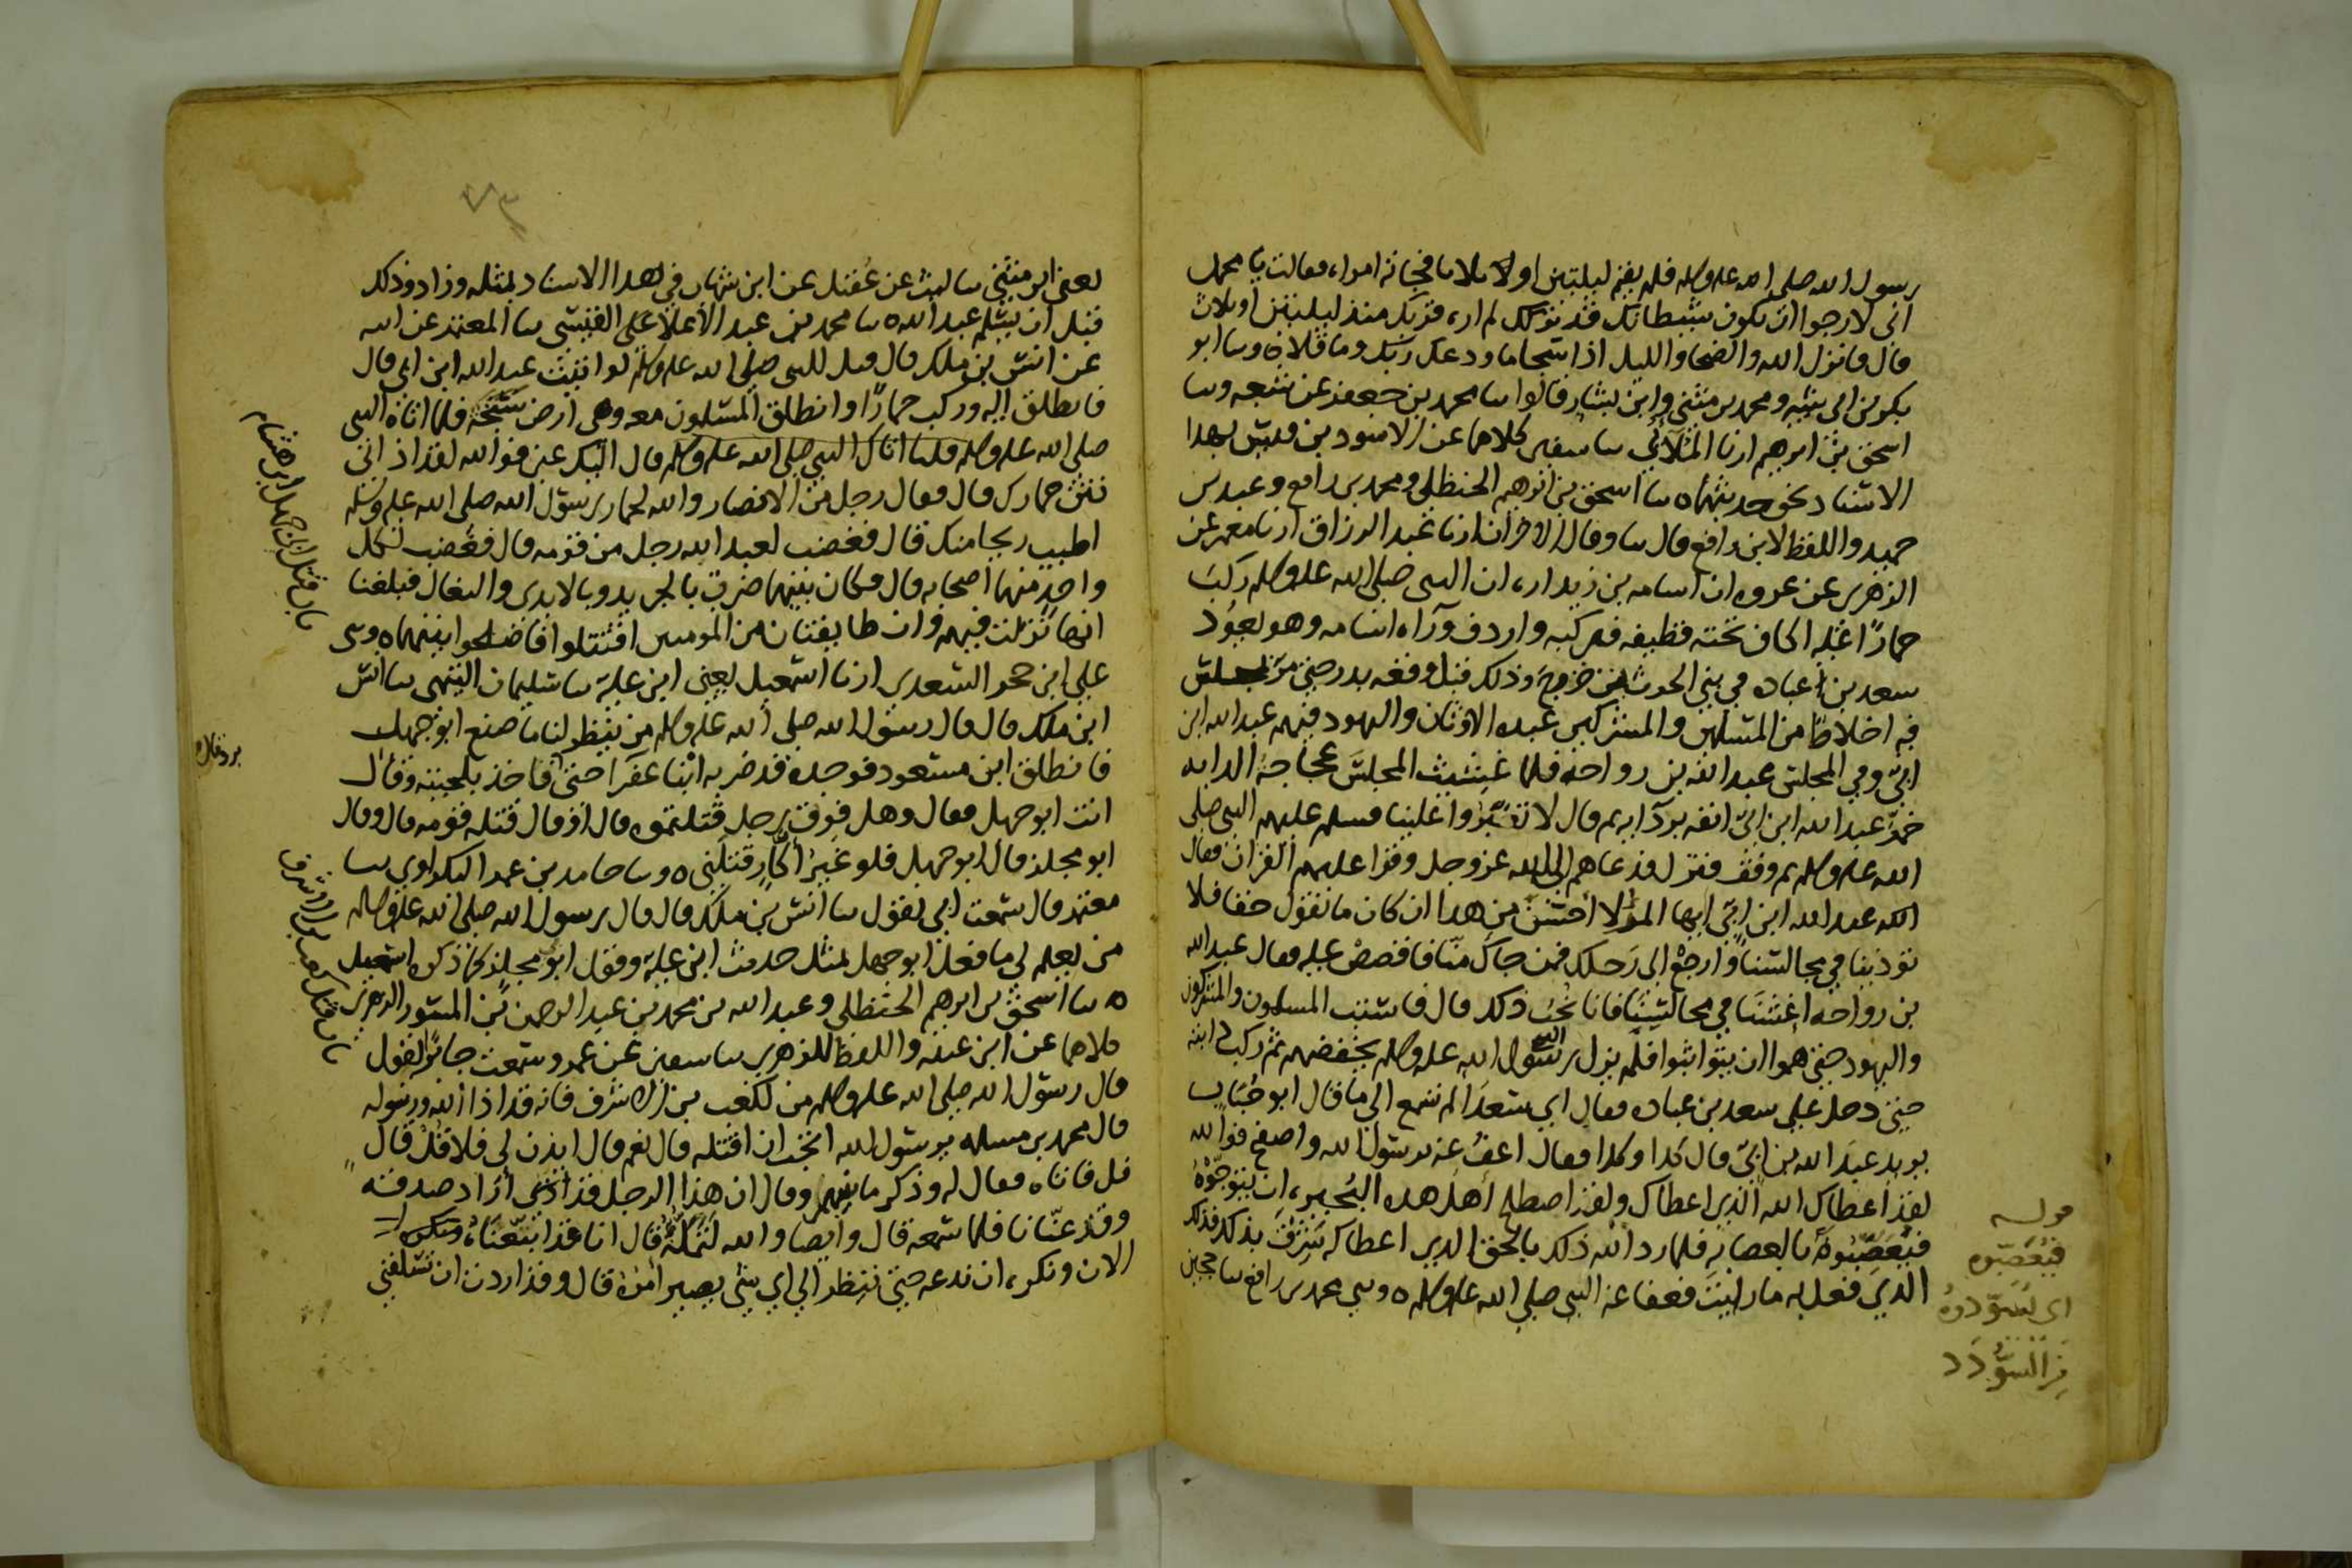 رسول الله صلى الله عليه وسلم فلم يقم ليلتين او ثلاثا فجاته امراه فقالت يا محمد
انى لارجوا ان يكون شيطانك قد تركك لم اره قربك منذ ليلتين او ثلاث
قال فانزل الله والضحا والليل اذا سجا ما ودعك ربك وما قلا ه وسا ابو
بكر بن ابى شيبه ومحمد بن مثنى وابن بشار قالوا سا محمد بن جعفر عن شعبه وسا
اسحق بن ابرهيم ارنا الملائى سا سفين كلاهما عن الاسود بن قيس بهذا
الاسناد نحو حديثهما ه سا اسحق بن ابرهيم الحنظلى ومحمد بن رافع وعبد بن
حميد واللفظ لابن رافع قال سا وقال الاخران ارنا عبد الرزاق ارنا معمر عن
الزهرى عن عروه ان اسامه بن زيد اره ان النبى صلى الله عليه وسلم ركب
حمارًا عليه اكاف تحته قطيفه فدكيه واردف وراه اسامه وهو يعود
سعد بن عباده فى بنى الحرث بن خزرج وذلك قبل وقعه بدر حتى مر بمجلس
فيه اخلاط من المسلمين والمشركين عبده الاوثان واليهود فيهم عبد الله ابن
ابىّ وفى المجلس عبد الله بن رواحه فلما غشيت المجلس عجاجة الدابه
خمّر عبد الله ابن ابىّ انفه بردآيه ثم قال لا تغبّروا علينا فسلم عليهم النبى صلى
الله عليه وسلم ثم وقف فنزل فدعاهم الى الله عز وجل وقرا عليهم القران فقال
له عبد الله ابن ابىّ ايها المرؤ لا احسن من هذا ان كان ما تقول حقا فلا
توذينا فى مجالسنا وارجع الى رحلك فمن جاك منّا فاقصص عليه فقال عبد الله
بن رواحه اغشنا فى مجالسنا فانا نحب ذلك قال فاستب المسلمون والمشركون
واليهود حتى هموا ان يتواثبوا فلم يزل رسول الله عليه وسلم يخفضهم ثم ركب دابته
حتى دخل على سعد بن عباده فقال اى سعد الم تسمع الى ما قال ابو حُباب
يريد عبد الله بن ابىّ قال كذا وكذا فقال اعف عنه يرسول الله واصفح فوالله
لقد اعطاك الله الذى اعطاك ولقد اصطلح اهل هذه البُحيره ان يتوجّوه
فيُعصّبُوه بالعصابه فلما رد الله ذلك بالحق الذى اعطاكه شرق بذلك فذلك
الذى فعل به ما رايت فعفا عنه النبى صلى الله عليه وسلم ه وسى محمد بن رافع سا حجين
قوله
فيُعصّبوه
اى يُسوّدوهُ
من السُّودَد
يعنى ابن مثنى سا ليث عن عُقيل عن ابن شهاب فى هذا الاسناد بمثله وزاد وذلك
قبل ان يسلم عبد الله ه سا محمد بن عبد الاعلا القيسى سا المعتمر عن ابيه
عن انس بن ملك قال قيل للنبى صلى الله عليه وسلم لو اتيت عبد الله ابن ابى قال
فانطلق اليه وركب حمارًا وانطلق المسلمون معه وهى ارض سبخه فلما اتاه النبى
صلى الله عليه وسلم فلما اتاك النبى صلى الله عليه وسلم قال اليك عنى فوالله لقد اذانى
نتن حمارك قال فقال رجل من الانصار والله لحمار رسول الله صلى الله عليه وسلم
اطيب ريحا منك قال فغضب لعبد الله رجل من قومه قال فغضب لكل
واحد منهما اصحابه قال فكان بينهما ضرب بالجريد وبالايدى والنعال فبلغنا
انها نزلت فيهم وان طايفتان من المومنين اقتتلوا فاصلحوا بينهما ه وسى
على ابن حجر السعدى ارنا اسمعيل يعنى ابن عليه سا سليمان التيمى سا انس
ابن ملك قال قال رسول الله صلى الله عليه وسلم من ينظر لنا ما صنع ابو جهل
فانطلق ابن مسعود فوجده قد ضربه ابنا عفرا حتى فاخذ بلحيته وقال
انت ابو جهل فقال وهل فوق رجل قتلتموه قال او قال قتله قومه قال وقال
ابو مجلز قال ابو جهل فلو غيرُ اكّار قتلنى ه وسا حامد بن عمر البكراوى سا
معتمر قال سمعت ابى يقول سا انس بن ملك قال قال رسول الله صلى الله عليه وسلم
من يعلم لى ما فعل ابو جهل بمثل حديث ابن عليه وقول ابو مجلز كما ذكره اسمعيل
ه سا اسحق بن ابرهيم الحنظلى وعبد الله بن محمد بن عبد الرحمن بن المسور الزهرى
كلاهما عن ابن عيينه واللفظ للزهرى سا سفين عن عمرو سمعت جابرًا يقول
قال رسول الله صلى الله عليه وسلم من لكعب بن الاشرف فانه قد اذا الله ورسوله
قال محمد بن مسلمه يرسول الله اتحب ان اقتله قال نعم قال ايذن لى فلاقل قال
قل فاتاه فقال له وذكر ما بينهما وقال ان هذا الرجل قد اراد صدقه
وقد عنّانا فلما سمعه قال وايضا والله لتملّنّه قال انا قد اتبعناه ونكره
الان ونكره ان ندعه حتى ننظر الى اى شى يصير امره قال وقد اردت ان تسلفنى
باب قتل ابى جهل بن هشام
برد قال
باب قتل كعب بن الاشرف